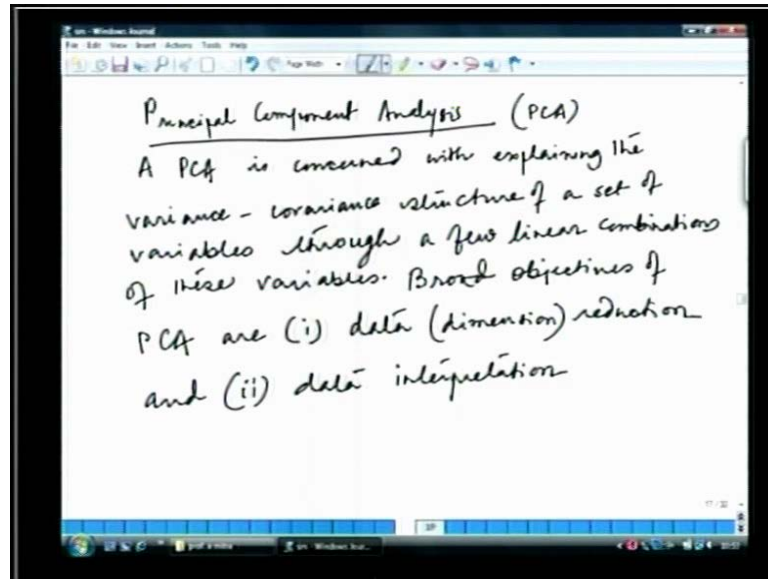 srs - Windows Journal
File Edit View Insert Actions Tools Help
Page Width
Principal Component Analysis (PCA)
A PCA is concerned with explaining the
variance - covariance structure of a set of
variables through a few linear combinations
of these variables. Broad objectives of
PCA are (i) data (dimension) reduction
and (ii) data interpretation
17/32
prof a mitra
10:53